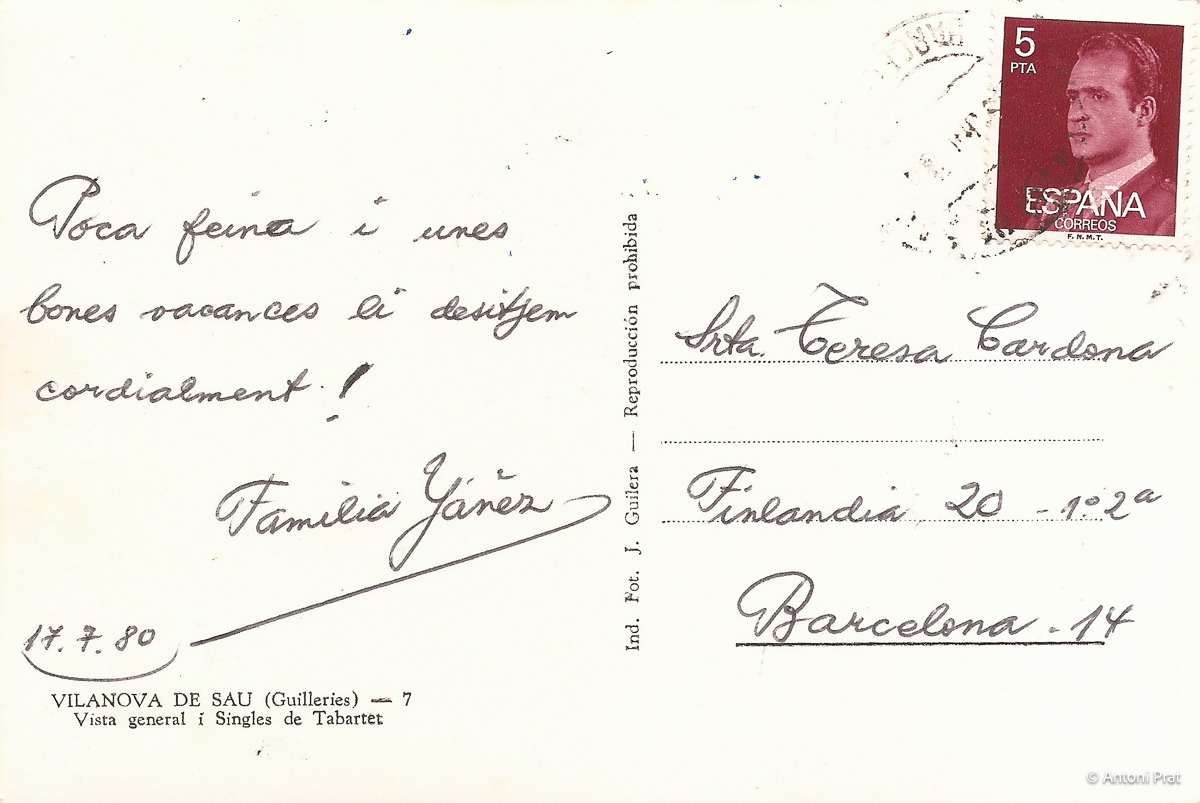 5
PTA
ESPAÑA
CORREOS
F.N.M.T.
Poca feina i unes
bones vacances li desitjem
cordialment !
Familia Yáñez
17.7.80
VILANOVA DE SAU (Guilleries) — 7
Vista general i Singles de Tabartet
Ind. Fot. J. Guilera — Reproducción prohibida
Srta. Teresa Cardona
Finlandia 20 - 1º 2ª
Barcelona - 14
© Antoni Prat